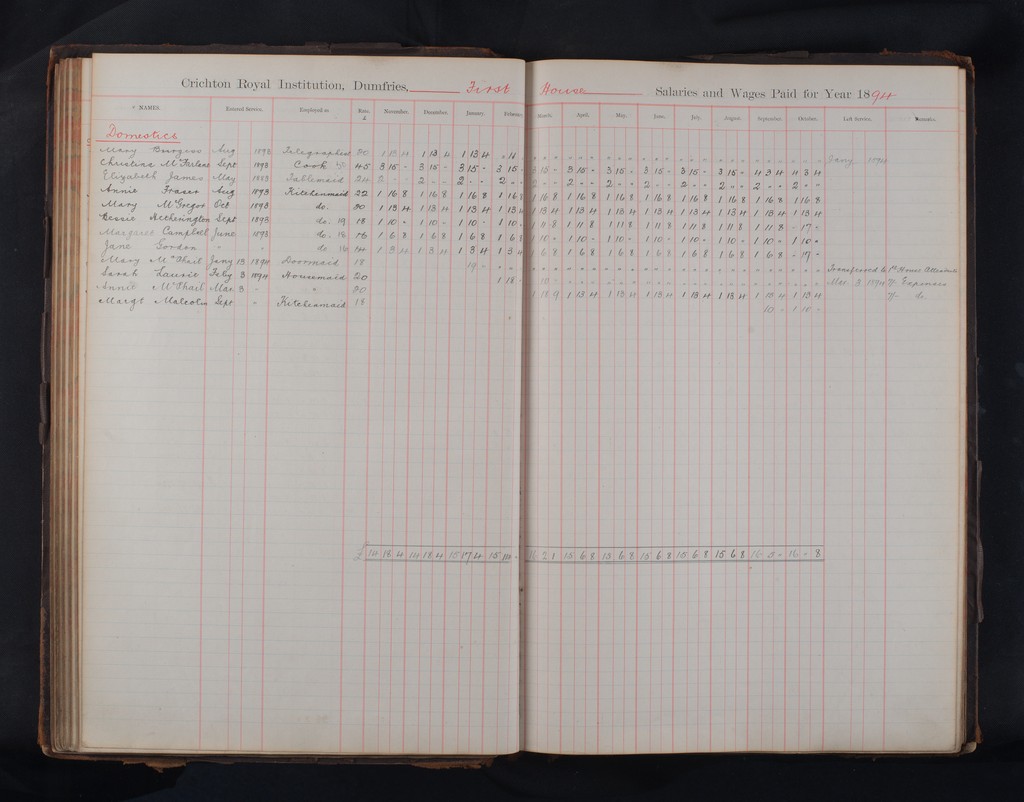 Crichton Royal Institution, Dumfries, First House Salaries and Wages Paid for Year 1894
NAMES. Entered Service. Employed as Rate. £ November. December. January. February March. April. May. June. July. August. September. October. Left Service.
Domestics
Mary Burgess Aug 1893 20 1 13 4 1 13 4 1 13 4 Jany 1894
Christina McFarlane Sept 1893 Cook 45 3 15 - 3 15 - 3 15 - 3 15 - 3 15 - 3 15 - 3 15 - 3 15 - 3 15 - 3 15 - 4 3 4 4 3 4
Elizabeth James May 1883 Tablemaid 24 2 - - 2 - - 2 - - 2 - - 2 - - 2 - - 2 - - 2 - - 2 - - 2 - - 2 - - 2 - -
Annie Fraser Aug 1893 Kitchenmaid 22 1 16 8 1 16 8 1 16 8 1 16 8 1 16 8 1 16 8 1 16 8 1 16 8 1 16 8 1 16 8 1 16 8 1 16 8
Mary McGregor Oct 1893 do. 20 1 13 4 1 13 4 1 13 4 1 13 4 1 13 4 1 13 4 1 13 4 1 13 4 1 13 4 1 13 4 1 13 4 1 13 4
Bessie Hetherington Sept 1893 do. 19 18 1 10 - 1 10 - 1 10 - 1 10 - 1 11 8 1 11 8 1 11 8 1 11 8 1 11 8 1 11 8 1 11 8 - 17 -
Margaret Campbell June 1893 do. 18 16 1 6 8 1 6 8 1 6 8 1 6 8 1 10 - 1 10 - 1 10 - 1 10 - 1 10 - 1 10 - 1 10 - 1 10 -
Jane Gordon " " do 16 14 1 3 4 1 3 4 1 3 4 1 3 4 1 6 8 1 6 8 1 6 8 1 6 8 1 6 8 1 6 8 1 6 8 - 17 -
Mary McPhail Jany 13 1894 Doormaid 18 19 - Transferred to 1st House Attendants
Sarah Laurie Feby 3 1894 Housemaid 20 1 18 - 10 - Mar. 3 1894 Expenses
Annie McPhail Mar. 3 " " 20 1 18 9 1 13 4 1 13 4 1 13 4 1 13 4 1 13 4 1 13 4 1 13 4 do.
Margt Malcolm Sept " Kitchenmaid 18 10 - 1 10 -
£ 14 18 4 14 18 4 15 17 4 15 10 - 16 2 1 15 6 8 15 6 8 15 6 8 15 6 8 15 6 8 16 5 - 16 - 8